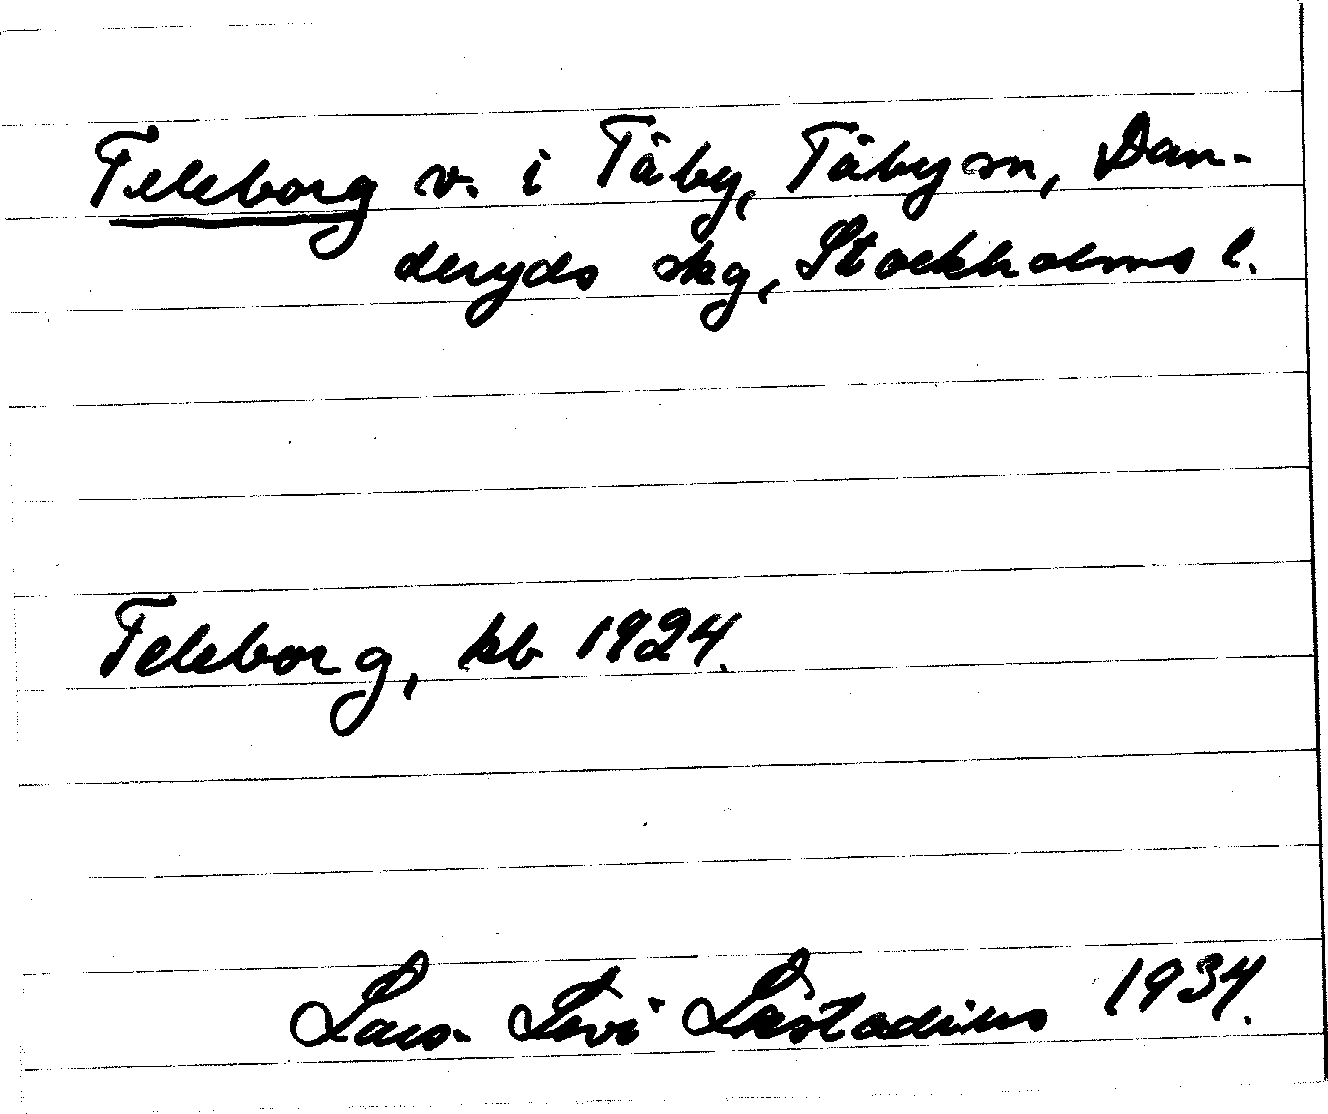 Teleborg v. i Täby, Täby sn, Dan-
deryds skg, Stockholms l.
Teleborg, kb 1924.
Lars-Levi Læstadius 1934.